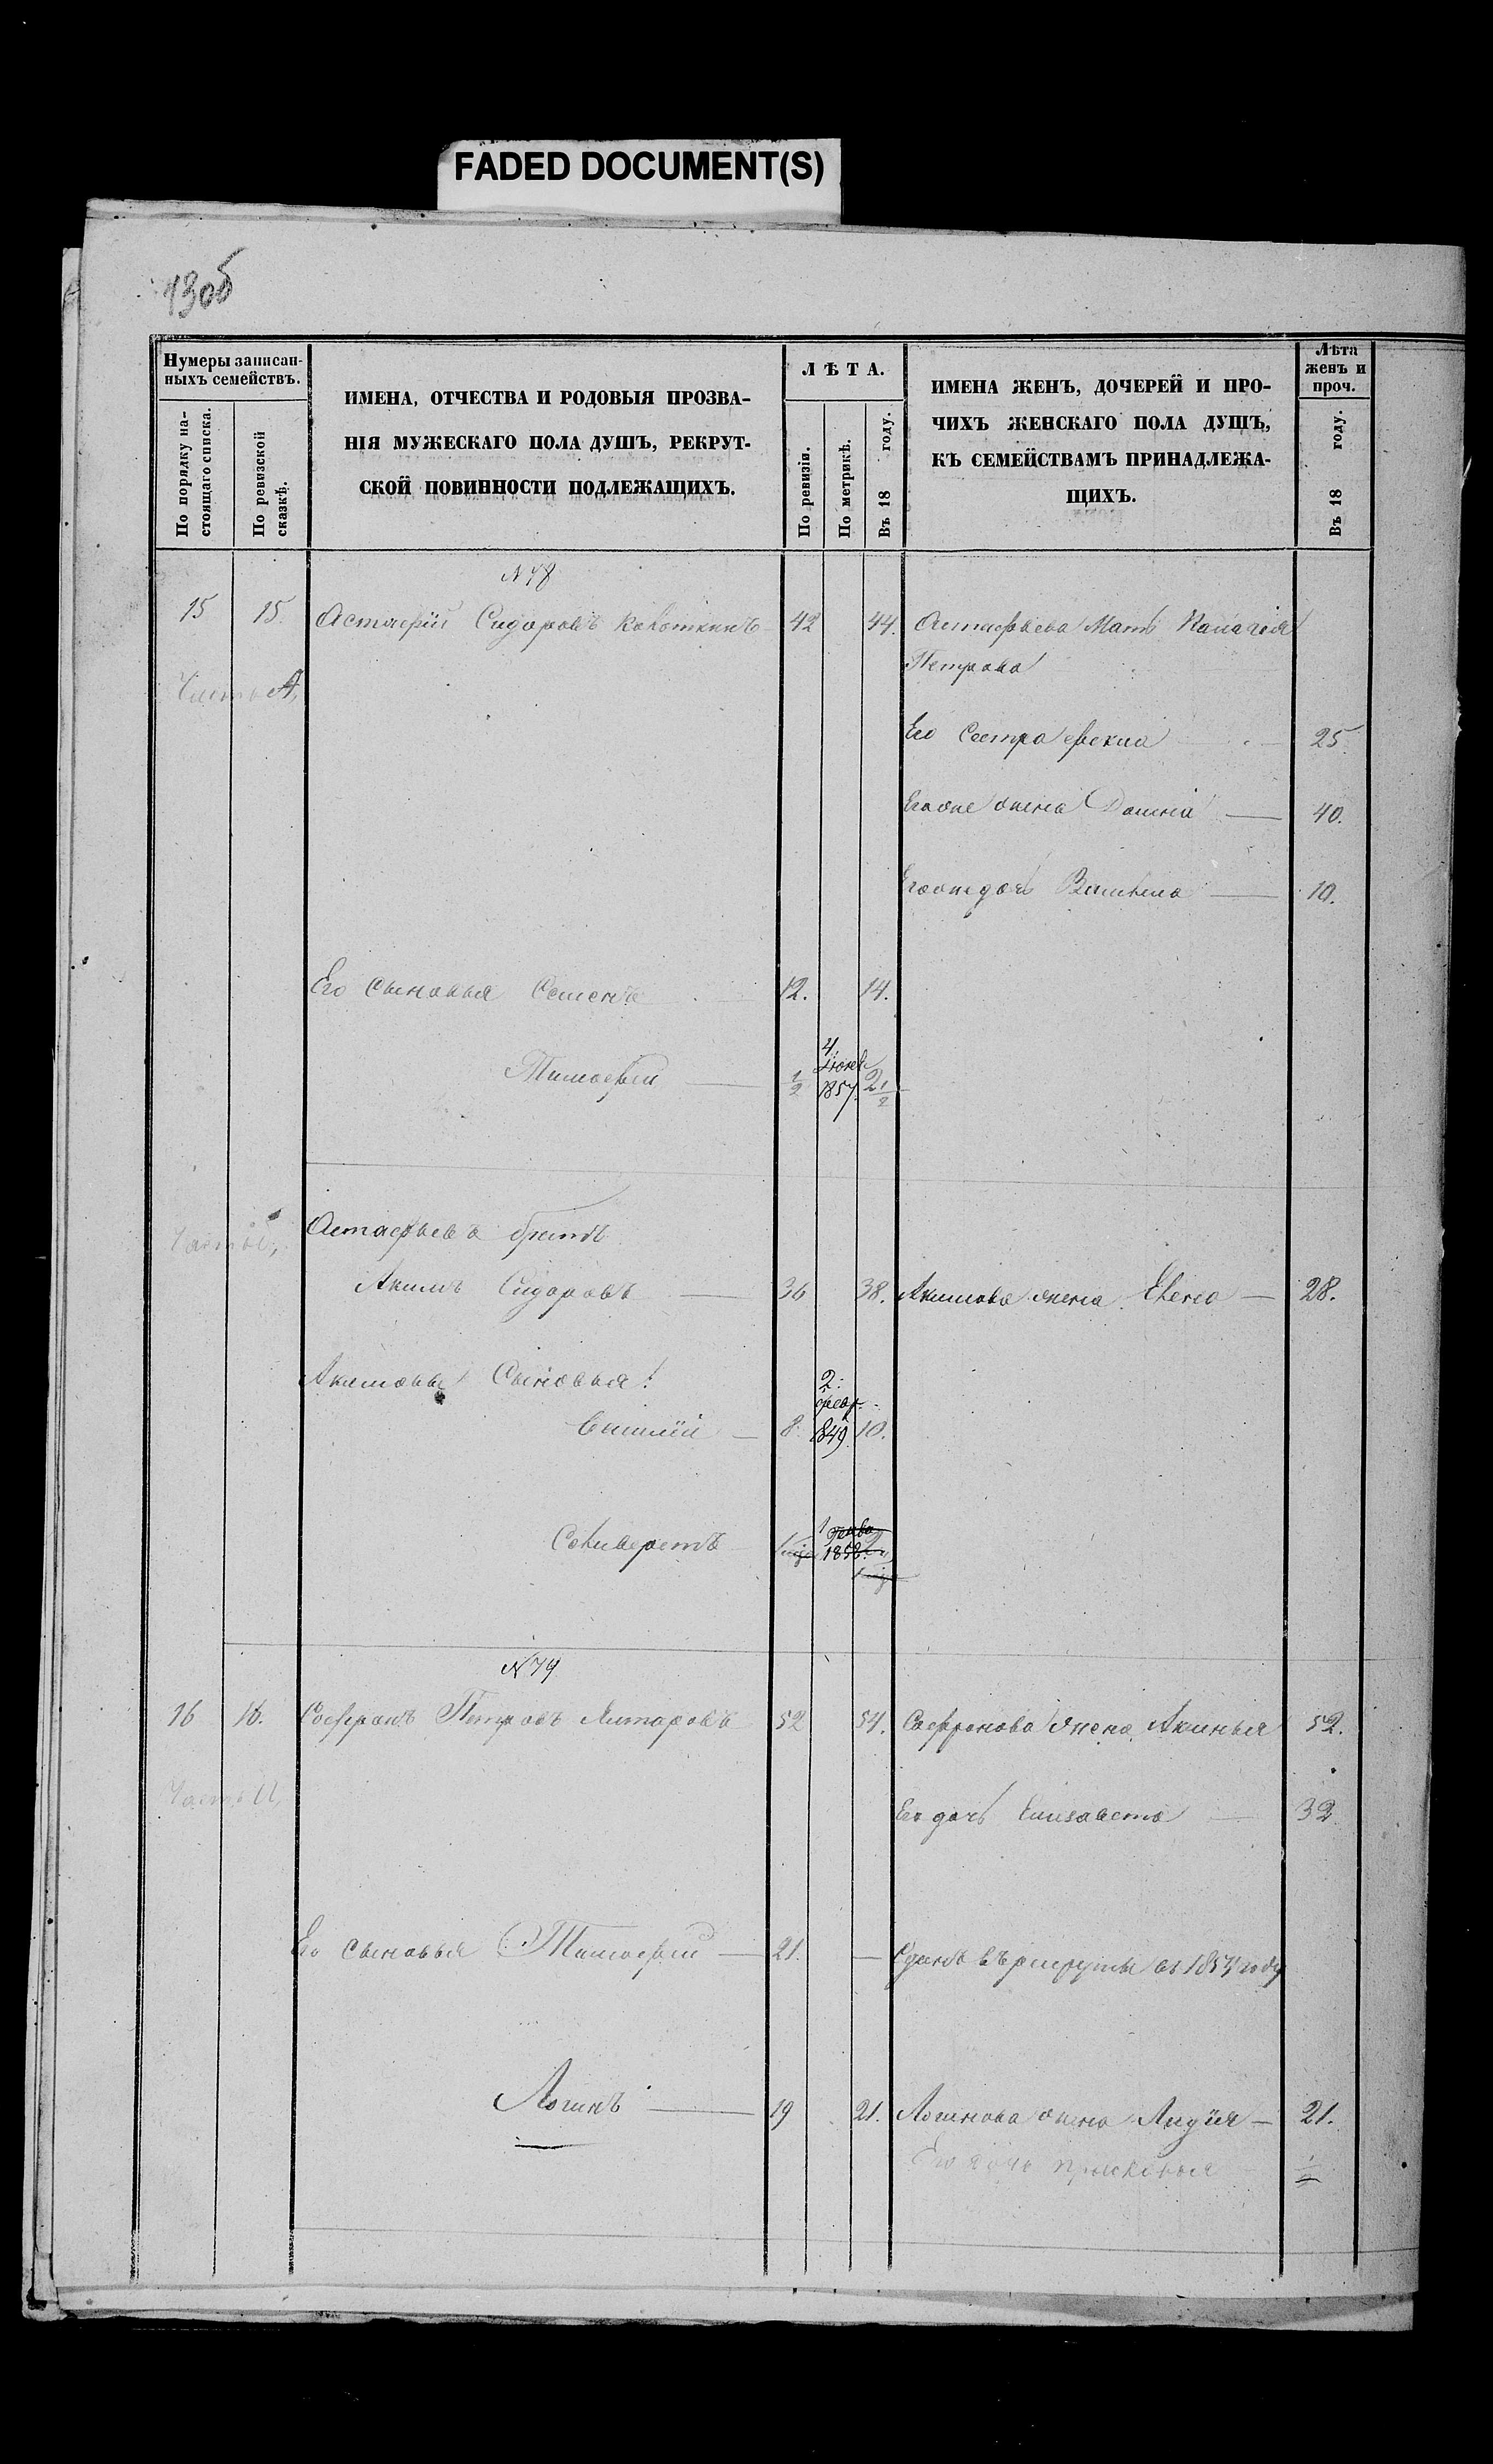 FADED DOCUMENT(S)
130б
Нумеры записан-
ныхъ семействъ.
По порядку на-
стоящаго списка.
По ревизской
сказкѣ.
ИМЕНА, ОТЧЕСТВА И РОДОВЫЯ ПРОЗВА-
НІЯ МУЖЕСКАГО ПОЛА ДУШЪ, РЕКРУТ-
СКОЙ ПОВИННОСТИ ПОДЛЕЖАЩИХЪ.
ЛѢТА.
По ревизіи.
По метрикѣ.
Въ 18 году.
ИМЕНА ЖЕНЪ, ДОЧЕРЕЙ И ПРО-
ЧИХЪ ЖЕНСКАГО ПОЛА ДУШЪ,
КЪ СЕМЕЙСТВАМЪ ПРИНАДЛЕЖА-
ЩИХЪ.
Лѣта
женъ и
проч.
Въ 18 году.
N 78
15 15. Астафій Сидоровъ 42 44. Астафьева Мать
Петрова
Часть А,
Его Сестра 25.
Егоже жена Домна 40.
Егоже дочь 10.
Его Сыновья Семенъ 12. 14.
Тимофей 1/2 4. 1857. 2 1/2
Астафьевъ братъ
Акимъ Сидоровъ 36 38. Акимова жена Елена 28.
Акимовы Сыновья:
8. 2. февр. 1849. 10.
Селиверстъ 1 1858.
N 79
16 16. Софронъ Петровъ 52 54. Софронова жена Акинья 52.
Часть
Его дочь Елизавета 32
Его Сыновья Тимофей 21. Сданъ въ рекруты въ 1854 году
Логинъ 19 21. Логинова жена Лидія 21.
Его дочь